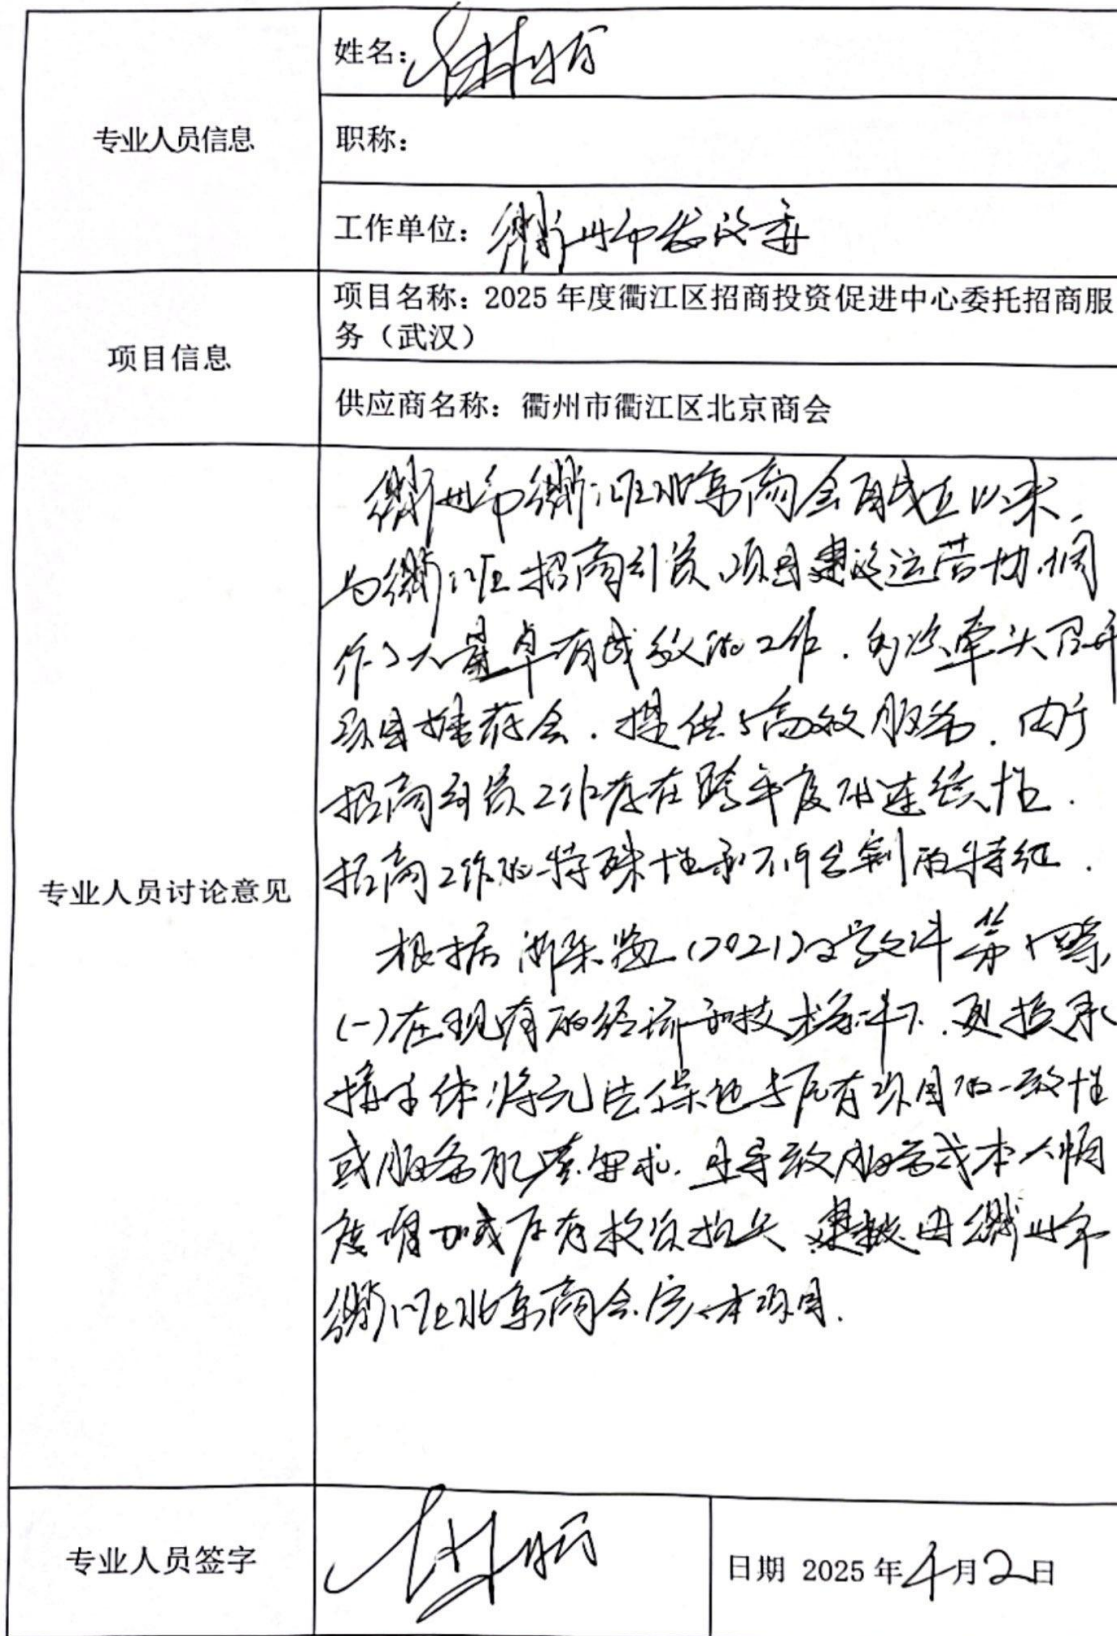 姓名：
专业人员信息
职称：
工作单位：衢州市发改委
项目名称：2025 年度衢江区招商投资促进中心委托招商服
务（武汉）
项目信息
供应商名称：衢州市衢江区北京商会
衢州市衢江区北京商会自成立以来，
为衢江区招商引资、项目建设运营协调
作了大量卓有成效的工作，多次牵头召开
项目推荐会，提供了高效服务。由于
招商引资工作存在跨年度的连续性，
招商工作的特殊性和不可分割的特征。
专业人员讨论意见
根据浙采监（2021）2号文件第十四条
（一）在现有的经济和技术条件下，更换承
接主体将无法保证与原有项目的一致性
或服务配套要求，且导致服务成本大幅
度增加或原有投资损失，建议由衢州市
衢江区北京商会本项目。
专业人员签字
日期 2025 年4月2日